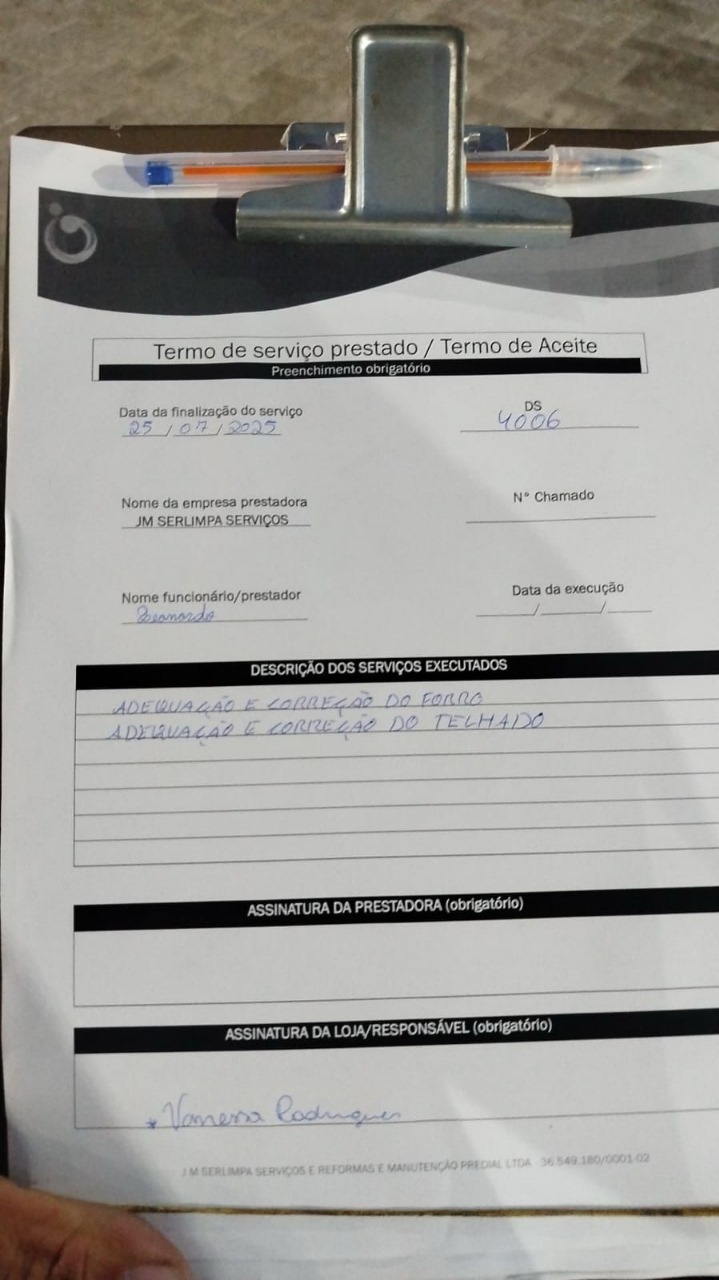 Termo de serviço prestado / Termo de Aceite
Preenchimento obrigatório
Data da finalização do serviço
25 / 07 / 2025
DS
4006
Nome da empresa prestadora
JM SERLIMPA SERVIÇOS
N° Chamado
Nome funcionário/prestador
Leonardo
Data da execução
/ /
DESCRIÇÃO DOS SERVIÇOS EXECUTADOS
ADEQUAÇÃO E CORREÇÃO DO FORRO
ADEQUAÇÃO E CORREÇÃO DO TELHADO
ASSINATURA DA PRESTADORA (obrigatório)
ASSINATURA DA LOJA/RESPONSÁVEL (obrigatório)
* Vanessa Rodrigues
J M SERLIMPA SERVIÇOS E REFORMAS E MANUTENÇÃO PREDIAL LTDA - 36.549.180/0001-02